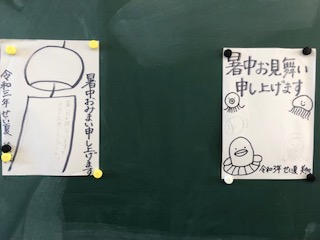 暑中おみまい申し上げます
令和三年 せい夏
暑中お見舞い
申し上げます
令和3年 せい夏